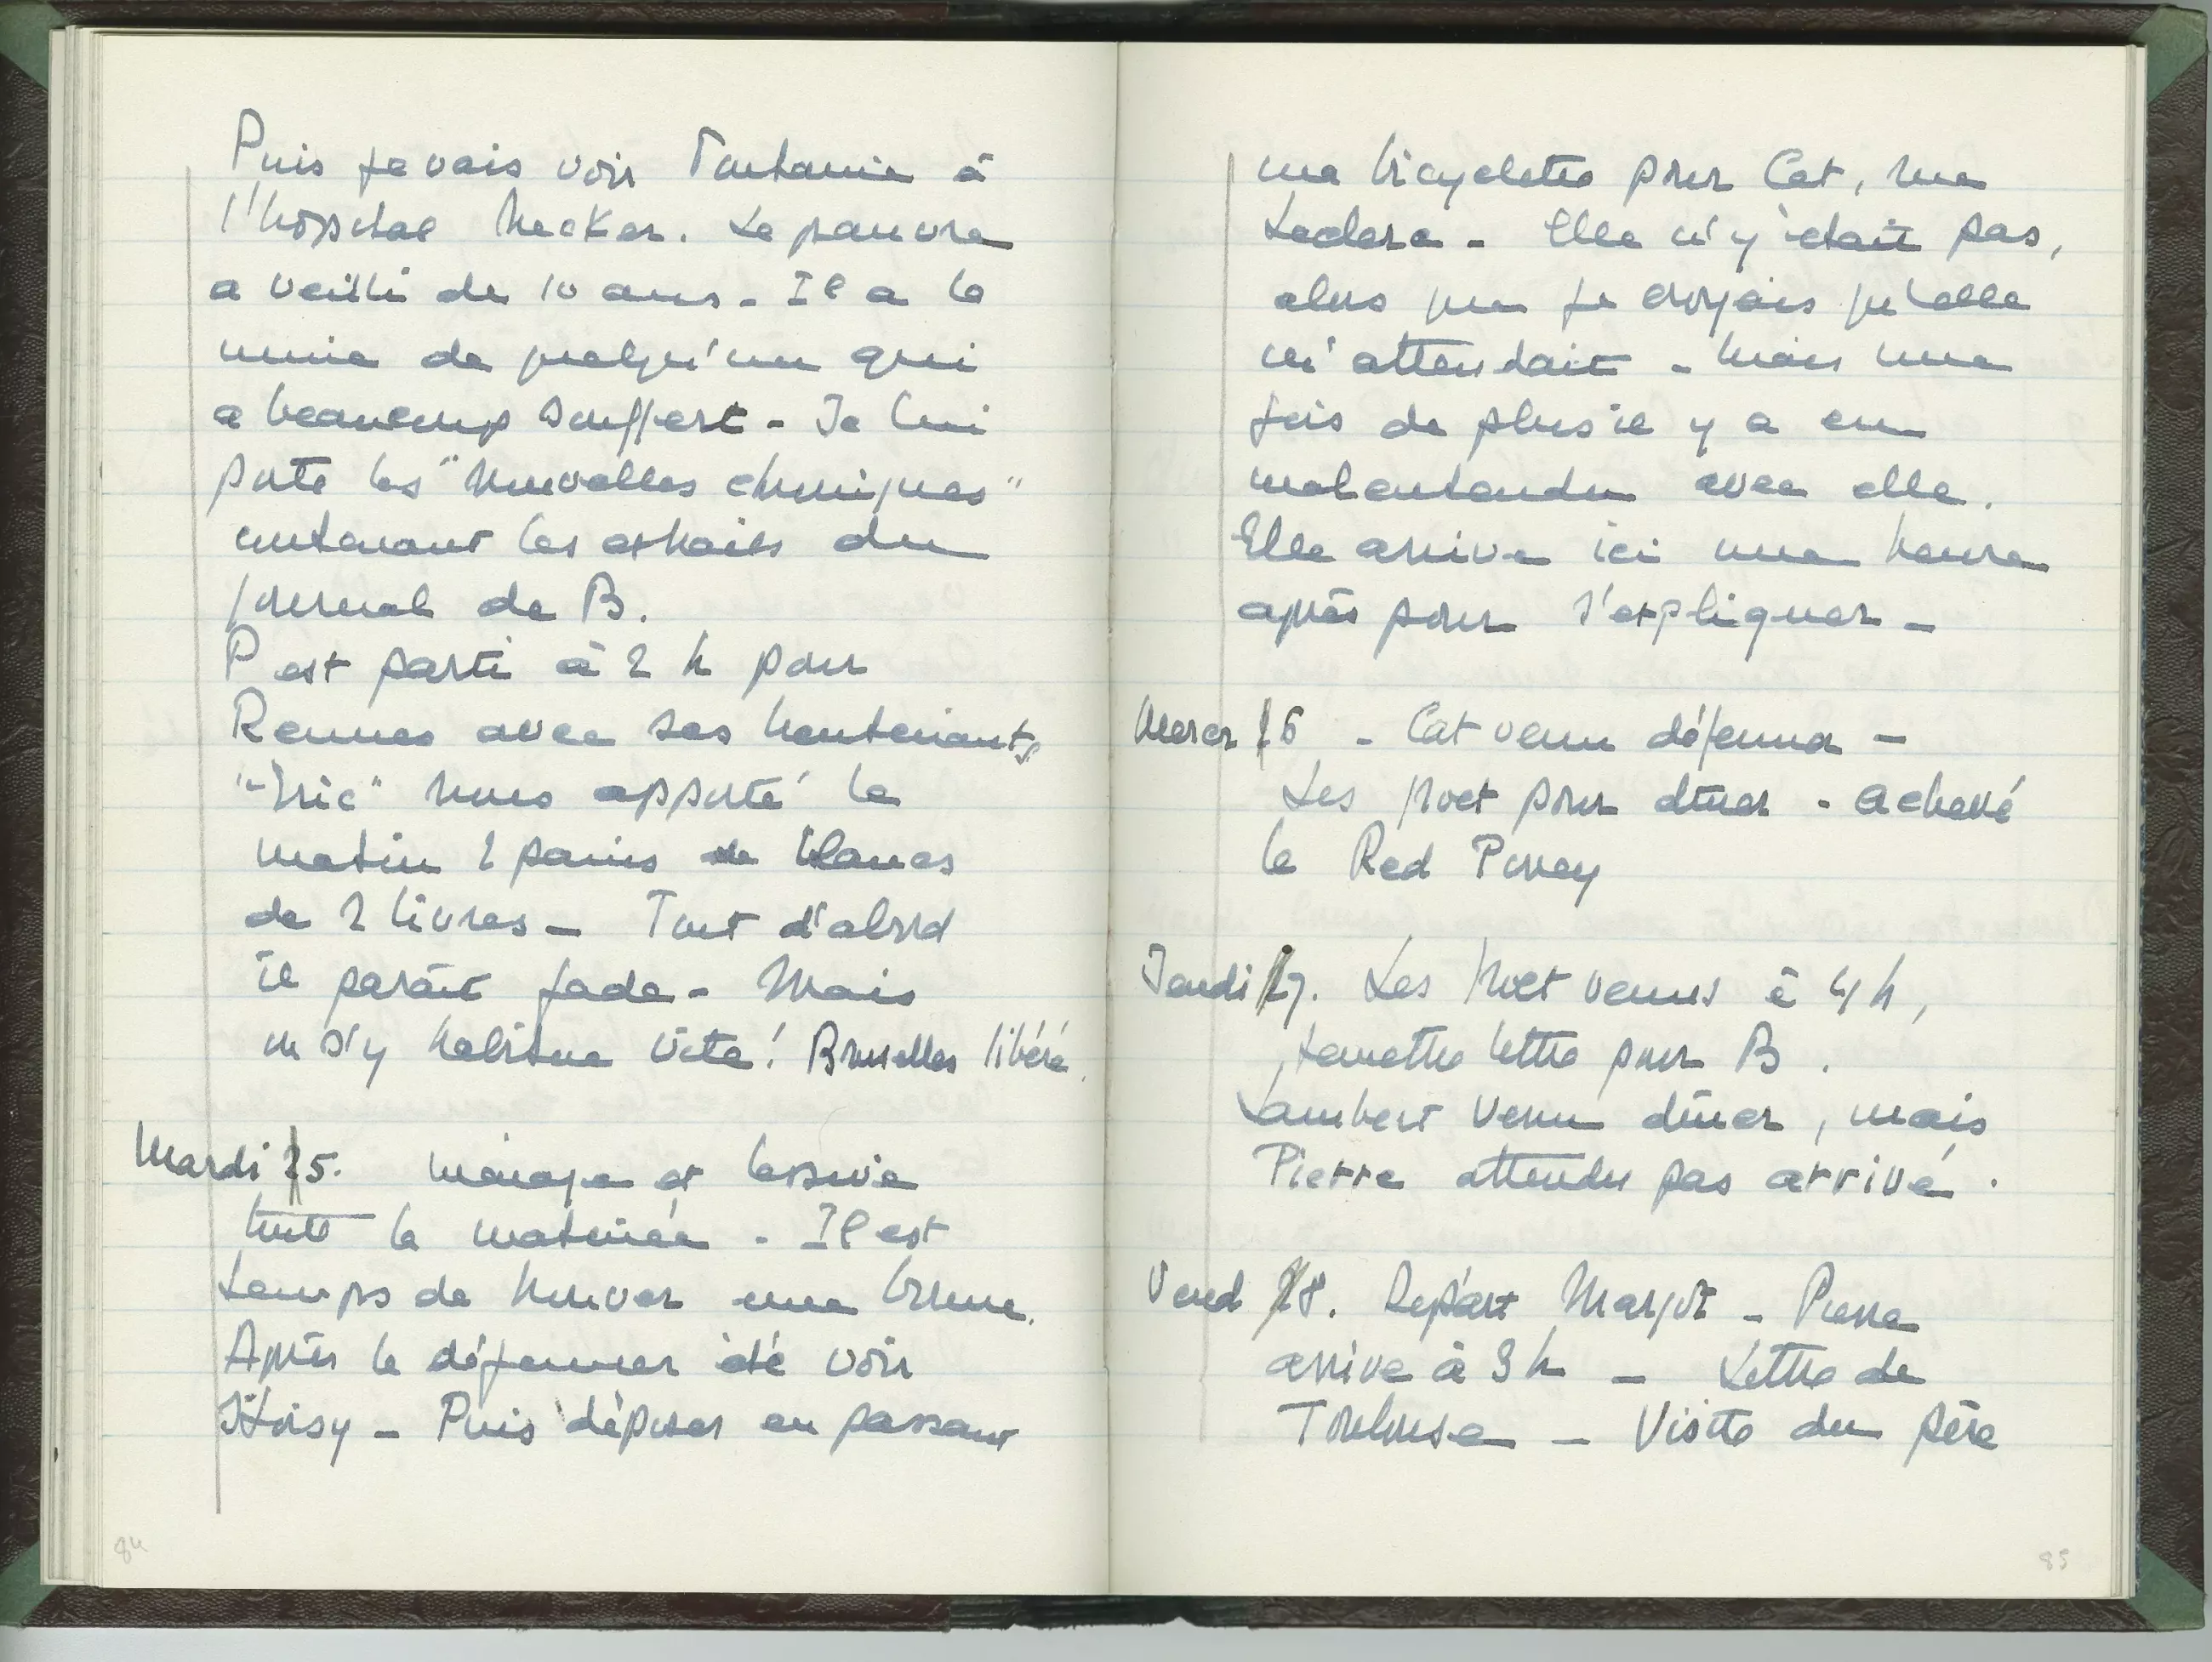 Puis je vais voir Fontaine à
l'hôpital Necker. Le pauvre
a vieilli de 10 ans - Il a la
mine de quelqu'un qui
a beaucoup souffert - Je lui
porte les "Nouvelles chroniques"
contenant les extraits du
journal de B.
P est parti à 2 h pour
Rennes avec ses lieutenants
nous apporté le
matin 2 pains blancs
de 2 livres - Tout d'abord
il parait fade - Mais
on s'y habitue vite! Bruxelles libéré.
Mardi 5. Ménage et lessive
toute la matinée - Il est
temps de trouver une bonne.
Après le déjeuner été voir
- Puis déposer en passant
ma bicyclette pour Cat, rue
Leclerc - Elle n'y était pas,
alors que je croyais qu'elle
m'attendait - Mais une
fois de plus il y a eu
malentendu avec elle.
Elle arrive ici une heure
après pour s'expliquer -
Mercr 6 - Cat venu déjeuner -
Les pour dîner - achevé
le Red
Jeudi 7. Les venus à 4 h,
remettre lettre pour B.
Lambert venu dîner, mais
Pierre attendu pas arrivé.
Vend 8. Départ Margot - Pierre
arrive à 3 h - Lettre de
Toulouse - Visite du père
84
85